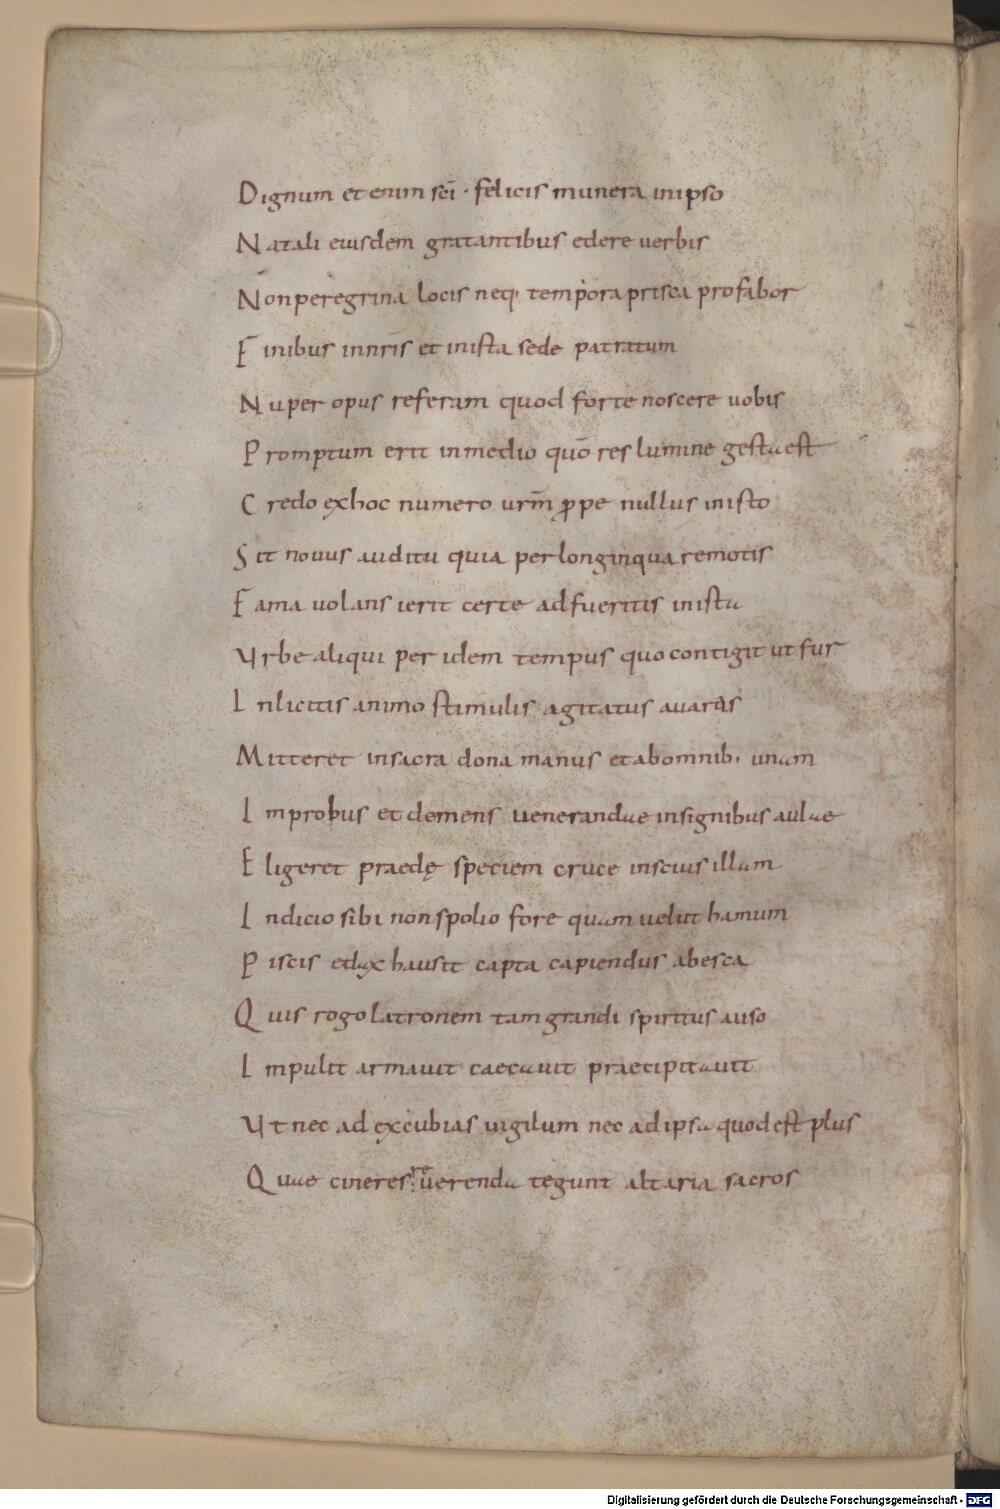 Dignum et enim scī · felicis munera in ipso
Natali eiusdem gratantibus edere uerbis
Non peregrina locis neq; tempora prisca profabor
Finibus in nrīs et in ista sede patratum
Nuper opus referam quod forte noscere uobis
Promptum erit in medio quō res lumine gesta est
Credo ex hoc numero urm̄ ꝓpe nullus in isto
Sit nouus auditu quia per longinqua remotis
Fama uolans ierit certe adfueritis in ista
Urbe aliqui per idem tempus quo contigit ut fur
Inlicitis animo stimulis agitatus auarus
Mitteret in sacra dona manus et ab omnib; unam
Improbus et demens uenerandae insignibus aulae
Eligeret praedę speciem cruce inscius illam
Indicio sibi non spolio fore quam uelut hamum
Piscis edax hausit capta capiendus ab esca
Quis rogo latronem tam grandi spiritus auso
Impulit armauit caecauit praecipitauit
Ut nec ad excubias uigilum nec ad ipsa quod est plus
Quae cineres uerenda tegunt altaria sacros
Digitalisierung gefördert durch die Deutsche Forschungsgemeinschaft - DFG